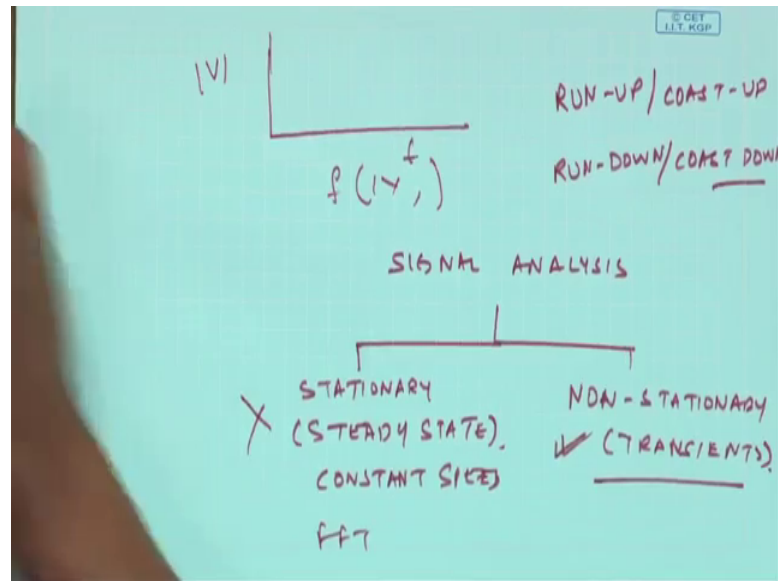 © CET
I.I.T. KGP
|V|
f
RUN-UP/COAST-UP
RUN-DOWN/COAST DOWN
SIGNAL ANALYSIS
STATIONARY
(STEADY STATE).
CONSTANT
FFT
NON-STATIONARY
(TRANSIENTS).